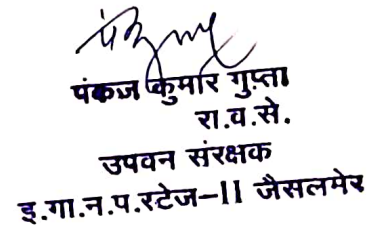 पंकज कुमार गुप्ता
रा.व.से.
उपवन संरक्षक
इ.गा.न.प.स्टेज-II जैसलमेर